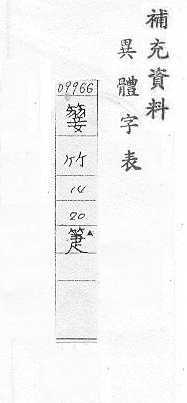 補充資料
異體字表
09966
竹
14
20
箑▲